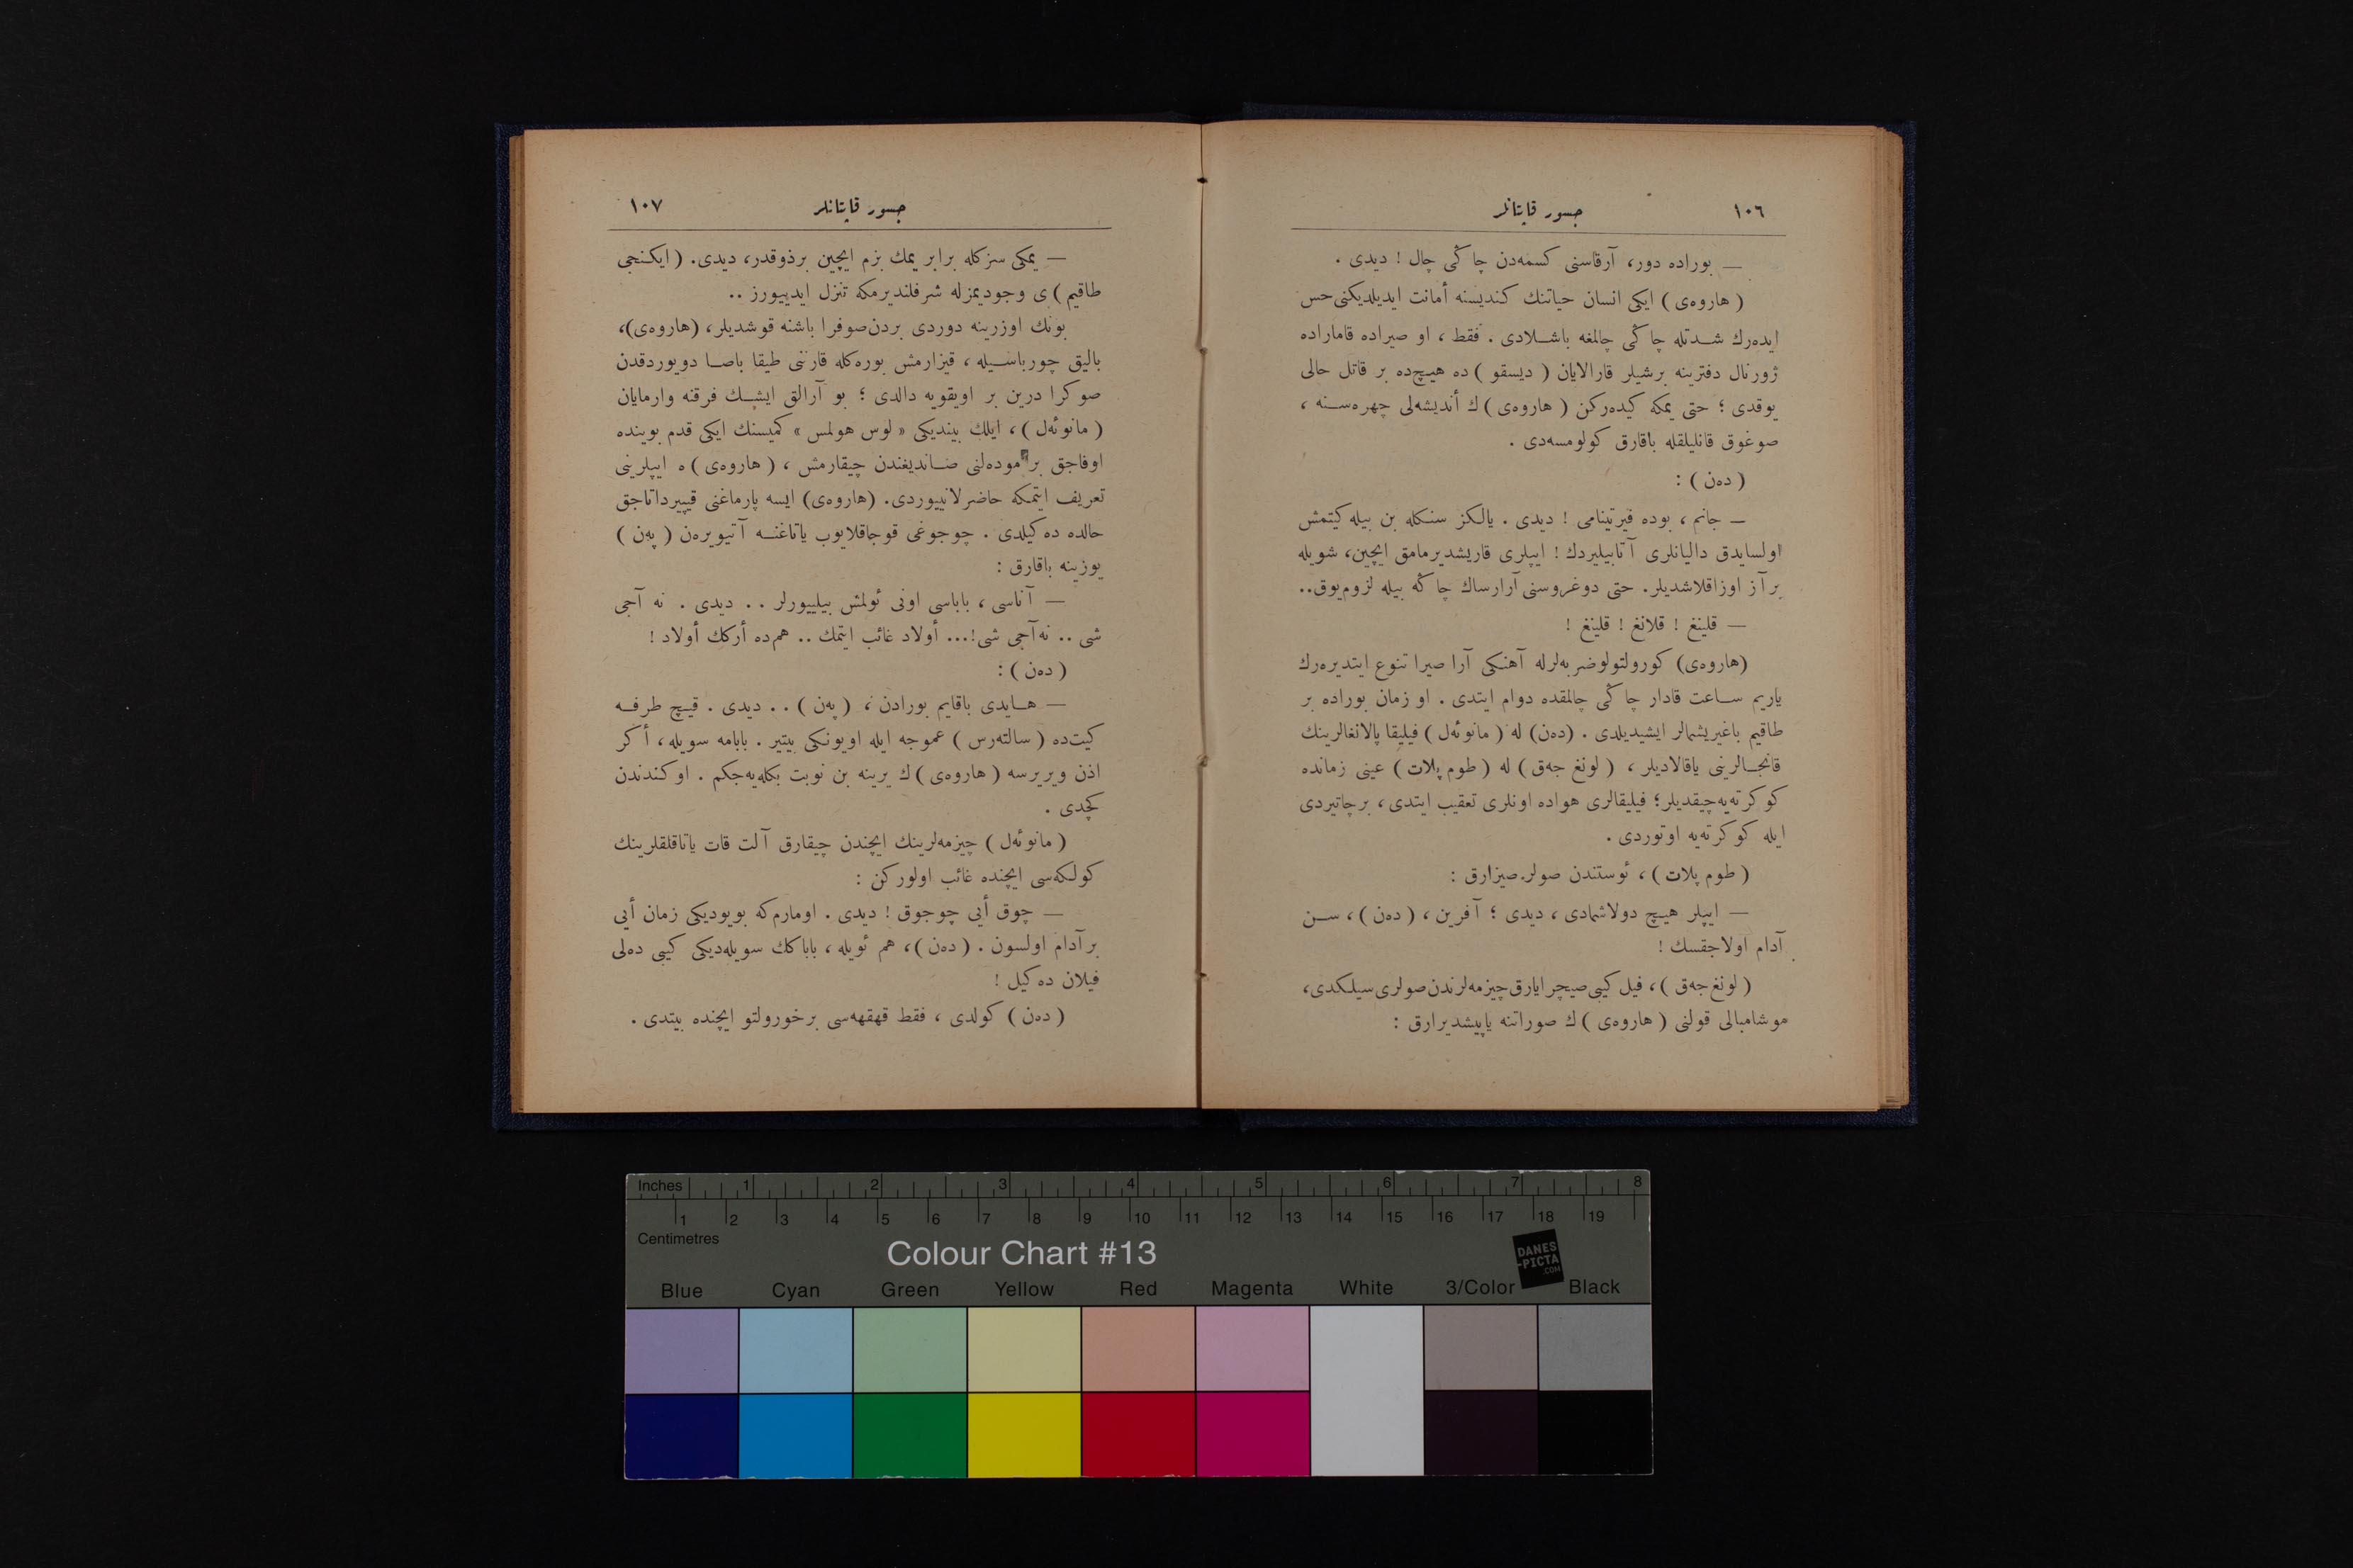 ١٠٦
جسور قاپتانلر
— بوراده دور، آرقاسنی كسمه‌دن چاڭی چال ! دیدی .
( هاروه‌ی ) ایكی انسان حیاتنك كندیسنه أمانت ایدیلدیكنی حس
ایده‌رك شدتله چاڭی چالمغه باشلادی . فقط ، او صیراده قاماراده
ژورنال دفترینه برشیلر قارالایان ( دیسقو ) ده هیچ‌ده بر قاتل حالی
یوقدی ؛ حتی یمكه كیده‌ركن ( هاروه‌ی ) ك أندیشه‌لی چهره‌سنه ،
صوغوق قانلیلقله باقارق كولومسه‌دی .
( ده‌ن ) :
— جانم ، بوده فیرتینامی ! دیدی . یالكز سنكله بن بیله كیتمش
اولسایدق دالیانلری آتابیلیردك ! ایپلری قاریشدیرمامق ایچین، شویله
بر آز اوزاقلاشدیلر. حتی دوغروسنی آرارساك چاڭه بیله لزوم یوق..
— قلینغ ! قلانغ ! قلینغ !
(هاروه‌ی) كورولتولو ضربه‌لرله آهنكی آرا صیرا تنوع ایتدیره‌رك
یاریم ساعت قادار چاڭی چالمقده دوام ایتدی . او زمان بوراده بر
طاقیم باغیریشمالر ایشیدیلدی . (ده‌ن) له ( مانوئه‌ل ) فیلیقا پالانغالرینك
قانجالرینی یاقالادیلر ، ( لونغ جه‌ق ) له ( طوم پلات ) عینی زمانده
كوكرته‌یه چیقدیلر؛ فیلیقالری هواده اونلری تعقیب ایتدی ، بر چاتیردی
ایله كوكرته‌یه اوتوردی .
( طوم پلات ) ، ئوستندن صولر صیزارق :
— ایپلر هیچ دولاشمادی ، دیدی ؛ آفرین ، ( ده‌ن ) ، سن
آدام اولاجقسك !
( لونغ جه‌ق ) ، فیل كیبی صیچرایارق چیزمه‌لرندن صولری سیلكدی،
موشامبالی قولنی ( هاروه‌ی ) ك صوراتنه یاپیشدیرارق :
جسور قاپتانلر
١٠٧
— یمكی سزكله برابر یمك بزم ایچین برذوقدر، دیدی. ( ایكنجی
طاقیم ) ی وجودیمزله شرفلندیرمكه تنزل ایدییورز ..
بونك اوزرینه دوردی بردن صوفرا باشنه قوشدیلر، (هاروه‌ی)،
بالیق چورباسیله ، قیزارمش بوره‌كله قارننی طیقا باصا دویوردقدن
صوكرا درین بر اویقویه دالدی ؛ بو آرالق ایشك فرقنه وارمایان
( مانوئه‌ل ) ، ایلك بیندیكی « لوس هولمس » كمیسنك ایكی قدم بوینده
اوفاجق بر موده‌لنی صاندیغندن چیقارمش ، ( هاروه‌ی ) ه ایپلرینی
تعریف ایتمكه حاضرلانییوردی. (هاروه‌ی) ایسه پارماغنی قیپیرداتاجق
حالده ده‌كیلدی . چوجوغی قوجاقلایوب یاتاغنه آتیویره‌ن ( په‌ن )
یوزینه باقارق :
— آناسی ، باباسی اونی ئولمش بیلییورلر . . دیدی . نه آجی
شی .. نه آجی شی!... أولاد غائب ایتمك .. هم‌ده أركك أولاد !
( ده‌ن ) :
— هایدی باقایم بورادن ، ( په‌ن ) . . دیدی . قیچ طرفه
كیت‌ده ( سالته‌رس ) عموجه ایله اویونكی بیتیر . بابامه سویله ، أكر
اذن ویریرسه ( هاروه‌ی ) ك یرینه بن نوبت بكله‌یه‌جكم . او كندندن
كچدی .
( مانوئه‌ل ) چیزمه‌لرینك ایچندن چیقارق آلت قات یاتاقلقلرینك
كولكه‌سی ایچنده غائب اولوركن :
— چوق أیی چوجوق ! دیدی . اومارم كه بویودیكی زمان أیی
بر آدام اولسون . ( ده‌ن ) ، هم ئویله ، باباكك سویله‌دیكی كیبی ده‌لی
فیلان ده‌كیل !
( ده‌ن ) كولدی ، فقط قهقهه‌سی بر خورولتو ایچنده بیتدی .
Inches 1 2 3 4 5 6 7 8
1 2 3 4 5 6 7 8 9 10 11 12 13 14 15 16 17 18 19
Centimetres
Colour Chart #13
DANES
-PICTA
.COM
Blue Cyan Green Yellow Red Magenta White 3/Color Black